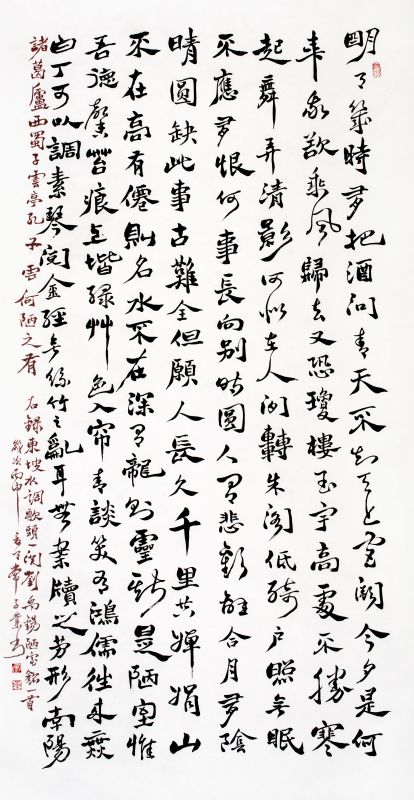 明月幾時有把酒問青天不知天上宮闕今夕是何
年我欲乘風歸去又恐瓊樓玉宇高處不勝寒
起舞弄清影何似在人間轉朱閣低綺戶照無眠
不應有恨何事長向別時圓人有悲歡離合月有陰
晴圓缺此事古難全但願人長久千里共嬋娟山
不在高有僊則名水不在深有龍則靈斯是陋室惟
吾德馨苔痕上堦綠艸色入帘青談笑有鴻儒往來無
白丁可以調素琴閱金經無絲竹之亂耳無案牘之勞形南陽
諸葛廬西蜀子雲亭孔子雲何陋之有
右錄東坡水調歌頭一闋劉禹錫陋室銘一首
歲次丙申